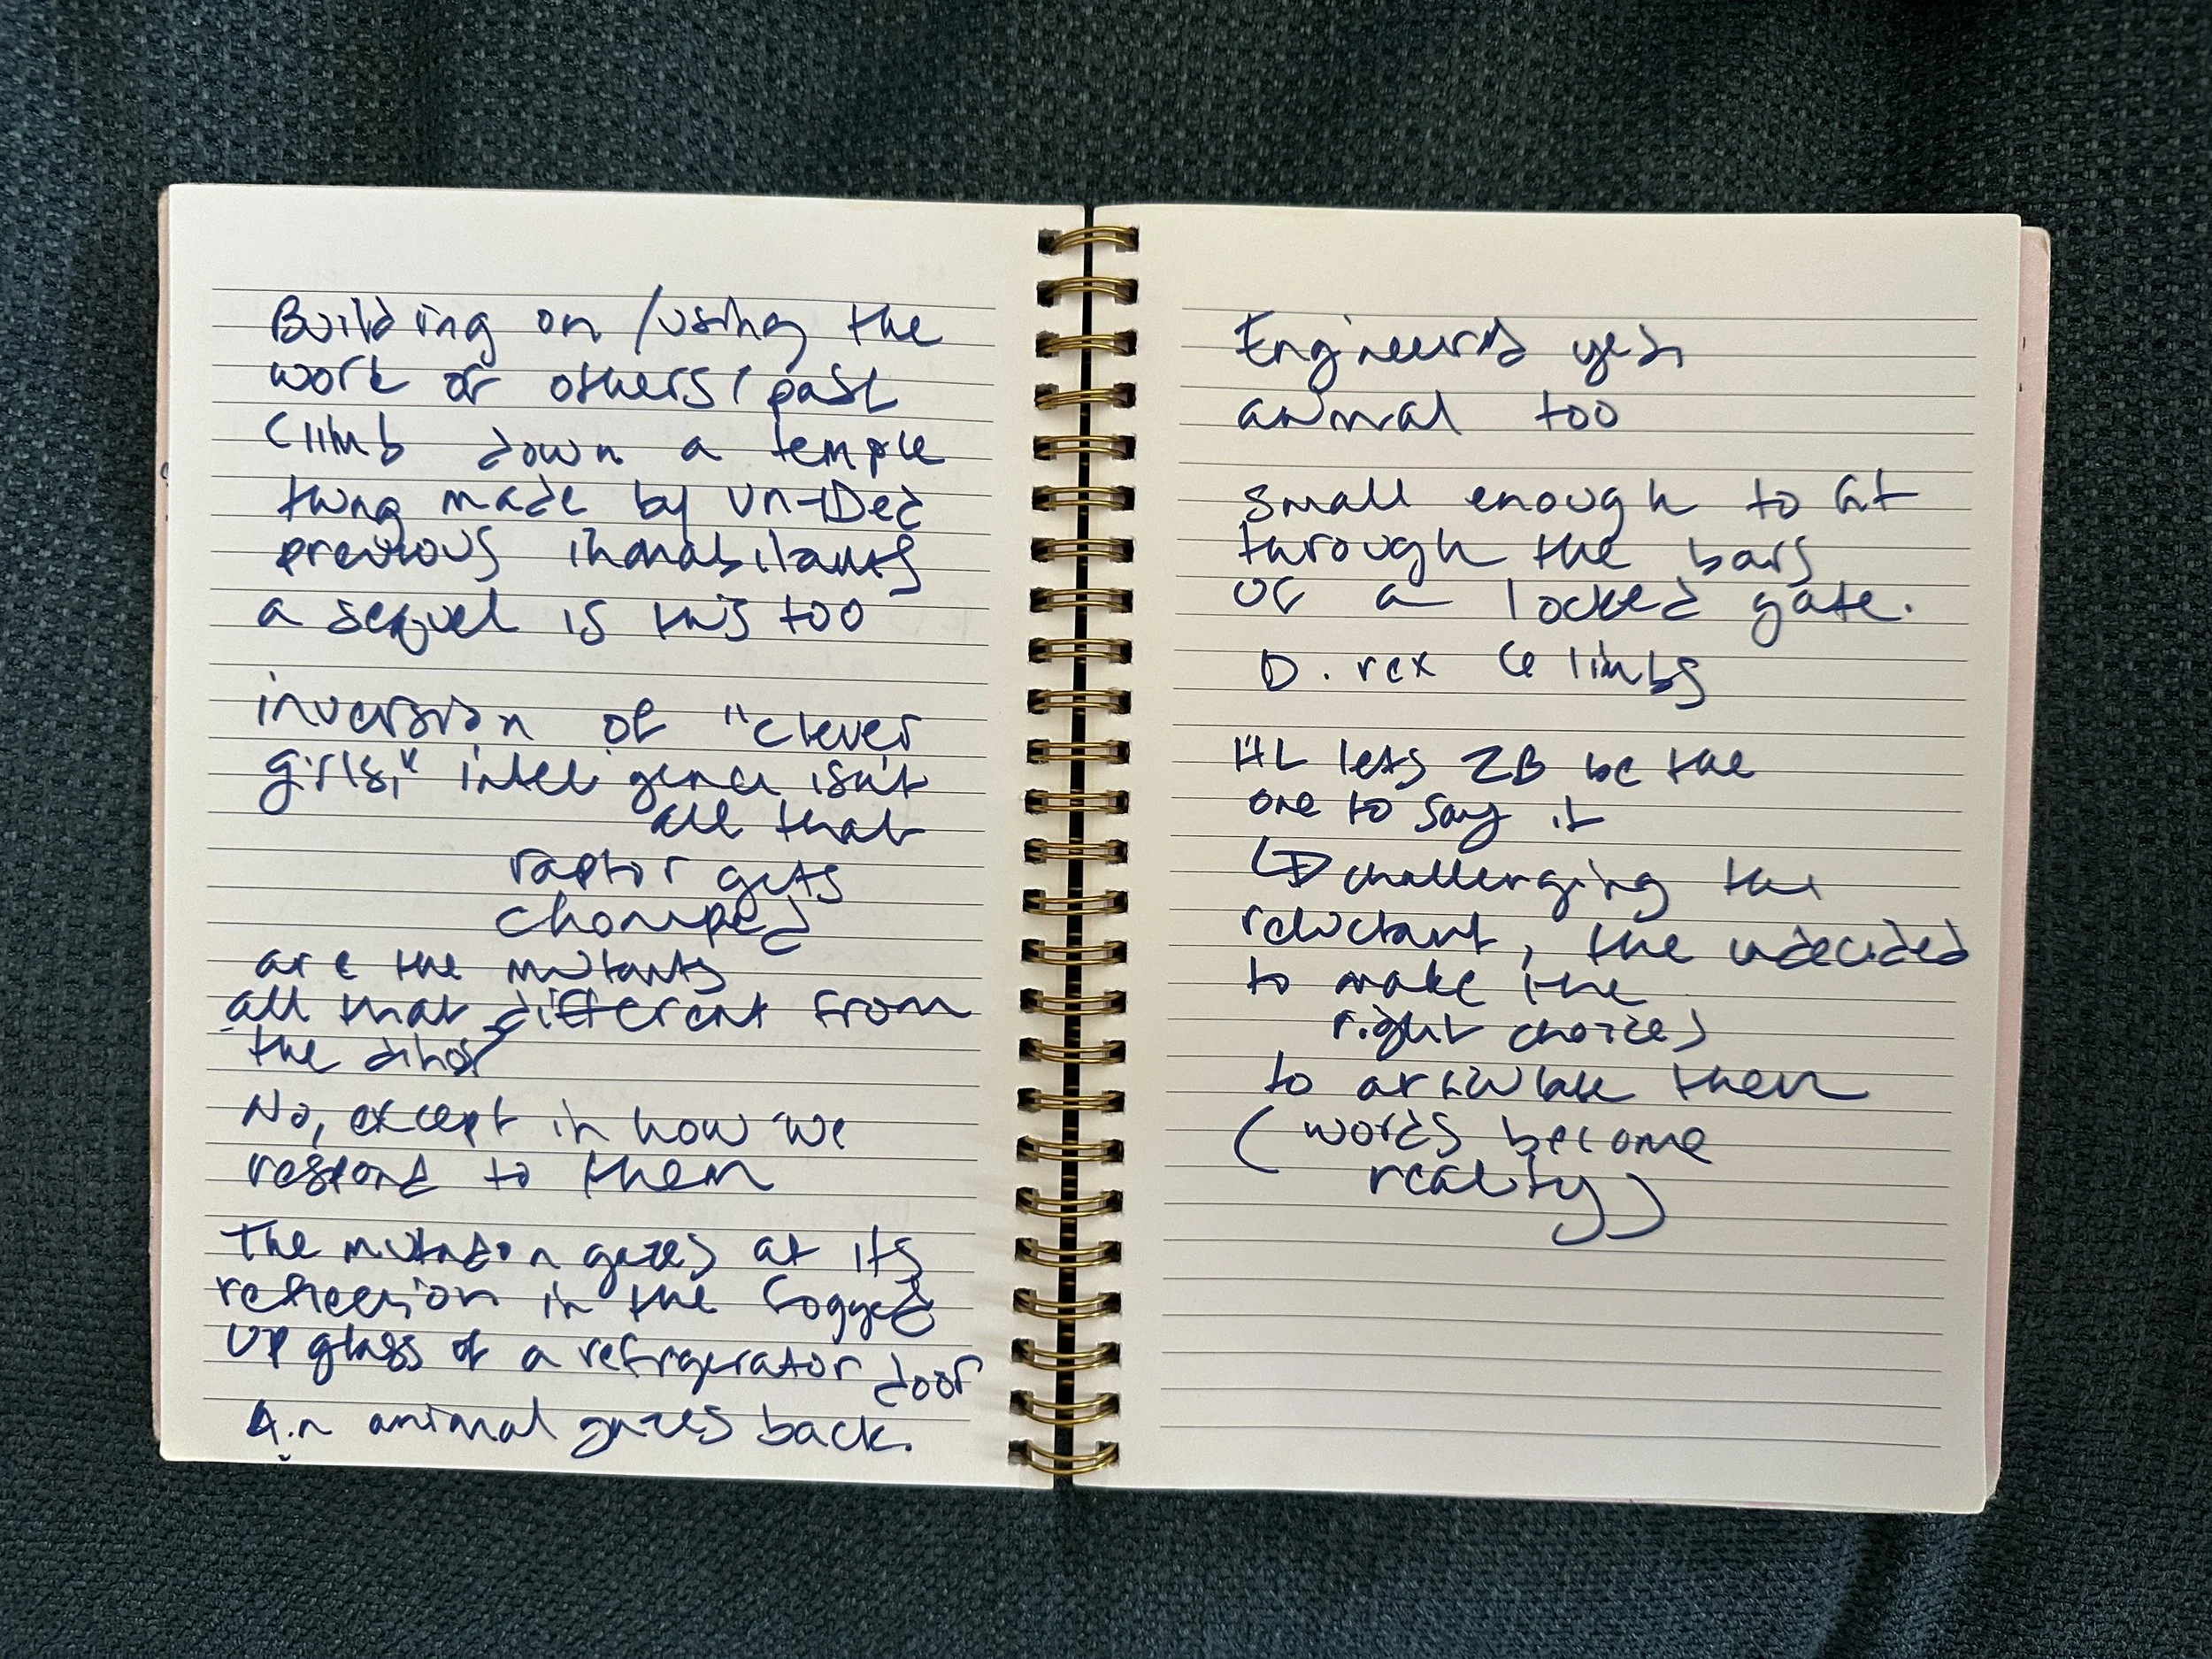 Building on /using the
work of others / past
Climb down a temple
thing made by un-IDed
previous inhabitants
a sequel is this too
inversion of "clever
girls," intelligence isn't
all that
raptor gets
chomped
are the mutants
all that different from
the dinos
No, except in how we
respond to them
The mutation gazes at its
reflection in the fogged
up glass of a refrigerator door
An animal gazes back.
Engineered yes,
animal too
small enough to fit
through the bars
of a locked gate.
D. rex 6 limbs
HL lets ZB be the
one to say it
challenging the
reluctant, the undecided
to make the
right choices
to articulate them
(words become
reality)